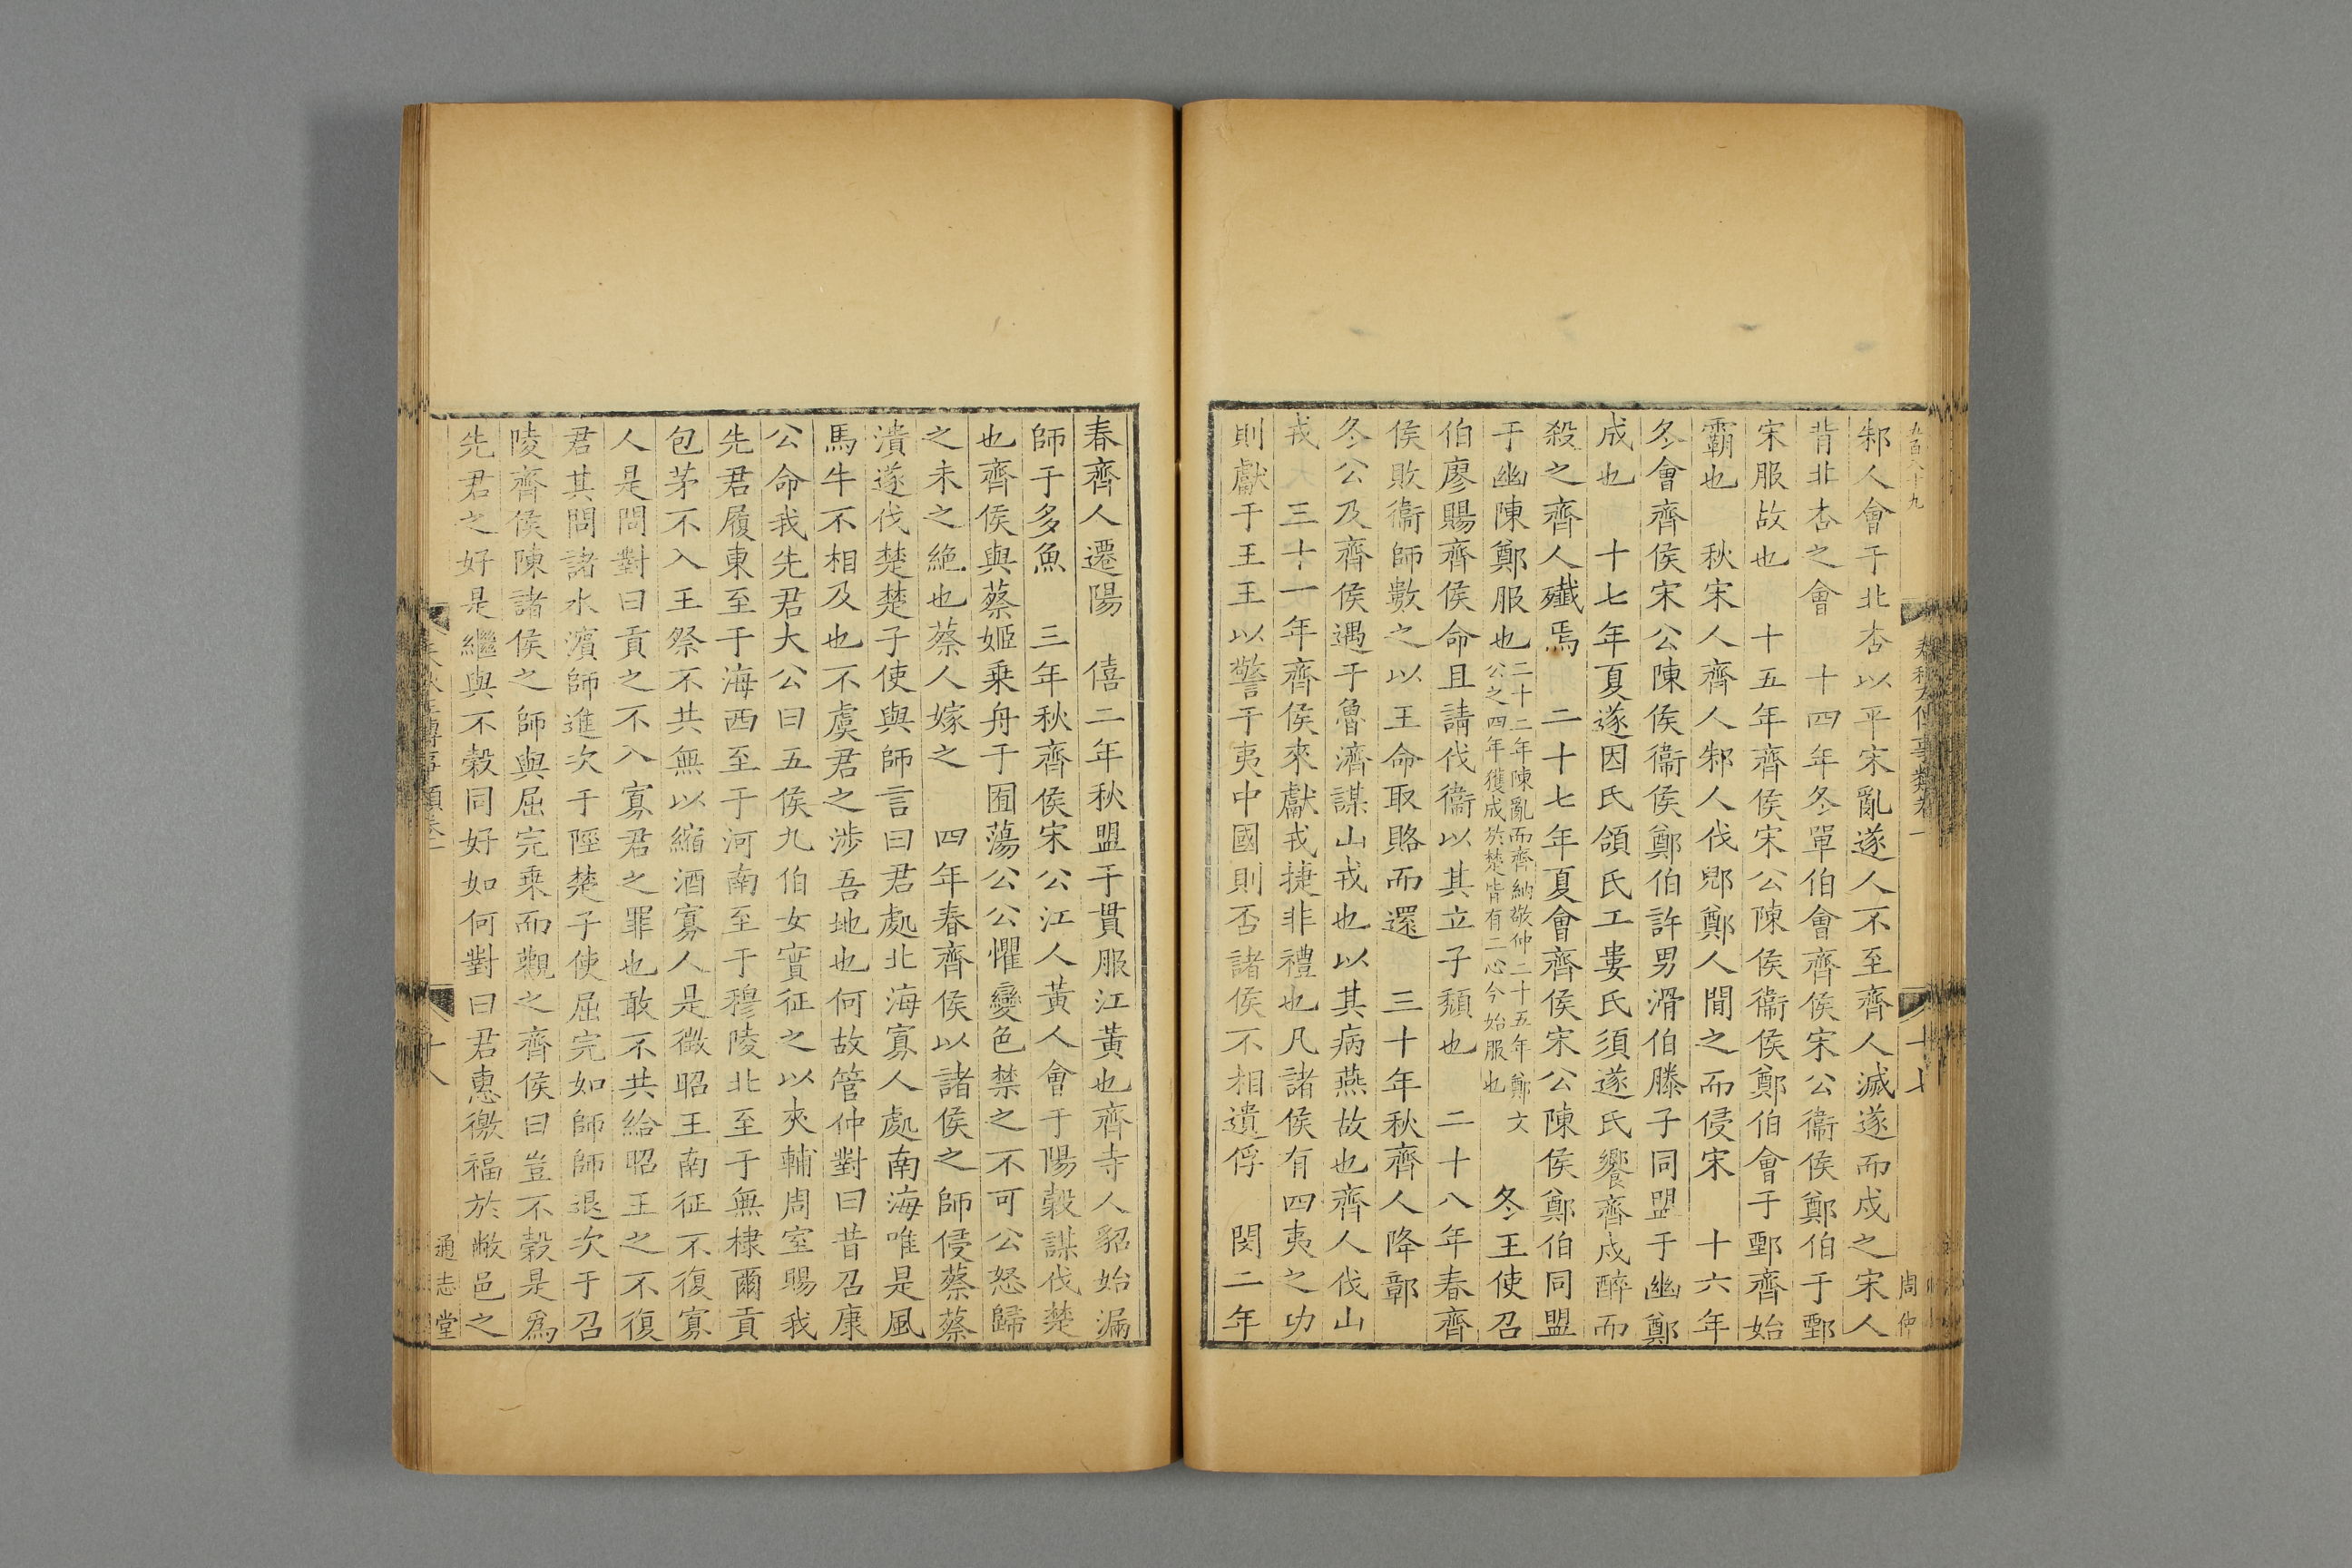 五百八十九
邾人會于北杏以平宋亂遂人不至齊人滅遂而戍之宋人
背北杏之會　十四年冬單伯會齊侯宋公衞侯鄭伯于鄄
宋服故也　十五年齊侯宋公陳侯衞侯鄭伯會于鄄齊始
霸也　秋宋人齊人邾人伐郳鄭人閒之而侵宋　十六年
冬會齊侯宋公陳侯衞侯鄭伯許男滑伯滕子同盟于幽鄭
成也　十七年夏遂因氏頜氏工婁氏須遂氏饗齊戍醉而
殺之齊人殲焉　二十七年夏會齊侯宋公陳侯鄭伯同盟
于幽陳鄭服也二十二年陳亂而齊納敬仲二十五年鄭文公之四年獲成於楚皆有二心今始服也　冬王使召
伯廖賜齊侯命且請伐衞以其立子頹也　二十八年春齊
侯敗衞師數之以王命取賂而還　三十年秋齊人降鄣
冬公及齊侯遇于魯濟謀山戎也以其病燕故也齊人伐山
戎　三十一年齊侯來獻戎捷非禮也凡諸侯有四夷之功
則獻于王王以警于夷中國則否諸侯不相遺俘　閔二年
春秋左傳事類卷一
十七
周仲
春齊人遷陽　僖二年秋盟于貫服江黃也齊寺人貂始漏
師于多魚　三年秋齊侯宋公江人黃人會于陽穀謀伐楚
也齊侯與蔡姬乗舟于囿蕩公公懼變色禁之不可公怒歸
之未之絶也蔡人嫁之　四年春齊侯以諸侯之師侵蔡蔡
潰遂伐楚楚子使與師言曰君處北海寡人處南海唯是風
馬牛不相及也不虞君之涉吾地也何故管仲對曰昔召康
公命我先君大公曰五侯九伯女實征之以夾輔周室賜我
先君履東至于海西至于河南至于穆陵北至于無棣爾貢
包茅不入王祭不共無以縮酒寡人是徵昭王南征不復寡
人是問對曰貢之不入寡君之罪也敢不共給昭王之不復
君其問諸水濱師進次于陘楚子使屈完如師師退次于召
陵齊侯陳諸侯之師與屈完乗而觀之齊侯曰豈不穀是爲
先君之好是繼與不穀同好如何對曰君惠徼福於敝邑之
十八
通志堂